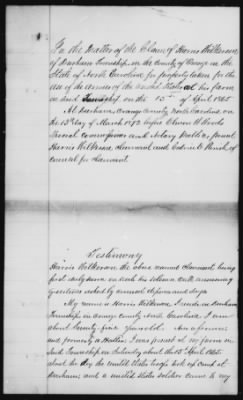 In the Matter of the Claim of Harris Wilkerson,
of Durham Township, in the County of Orange in the
State of North Carolina for property taken for the
use of the armies of the United States at his farm
in said Township, on the 15th of April 1865
At Durhams, Orange County, North Carolina on
the 13th day of March 1873 before
Special Commissioner and Notary Public, present
Harris Wilkerson, Claimant and
counsel for claimant
Testimony
Harris Wilkerson, the above named claimant, being
first duly sworn
questions
My name is Harris Wilkerson. I reside in Durham
Township in Orange County North Carolina. I am
about Seventy five years old. Am a farmer
and formerly a Hatter. I was present at my farm in
said Township on Saturday about the 15th April 1865.
about the day the united States troops took up camp at
Durhams; and a united States soldier came to my